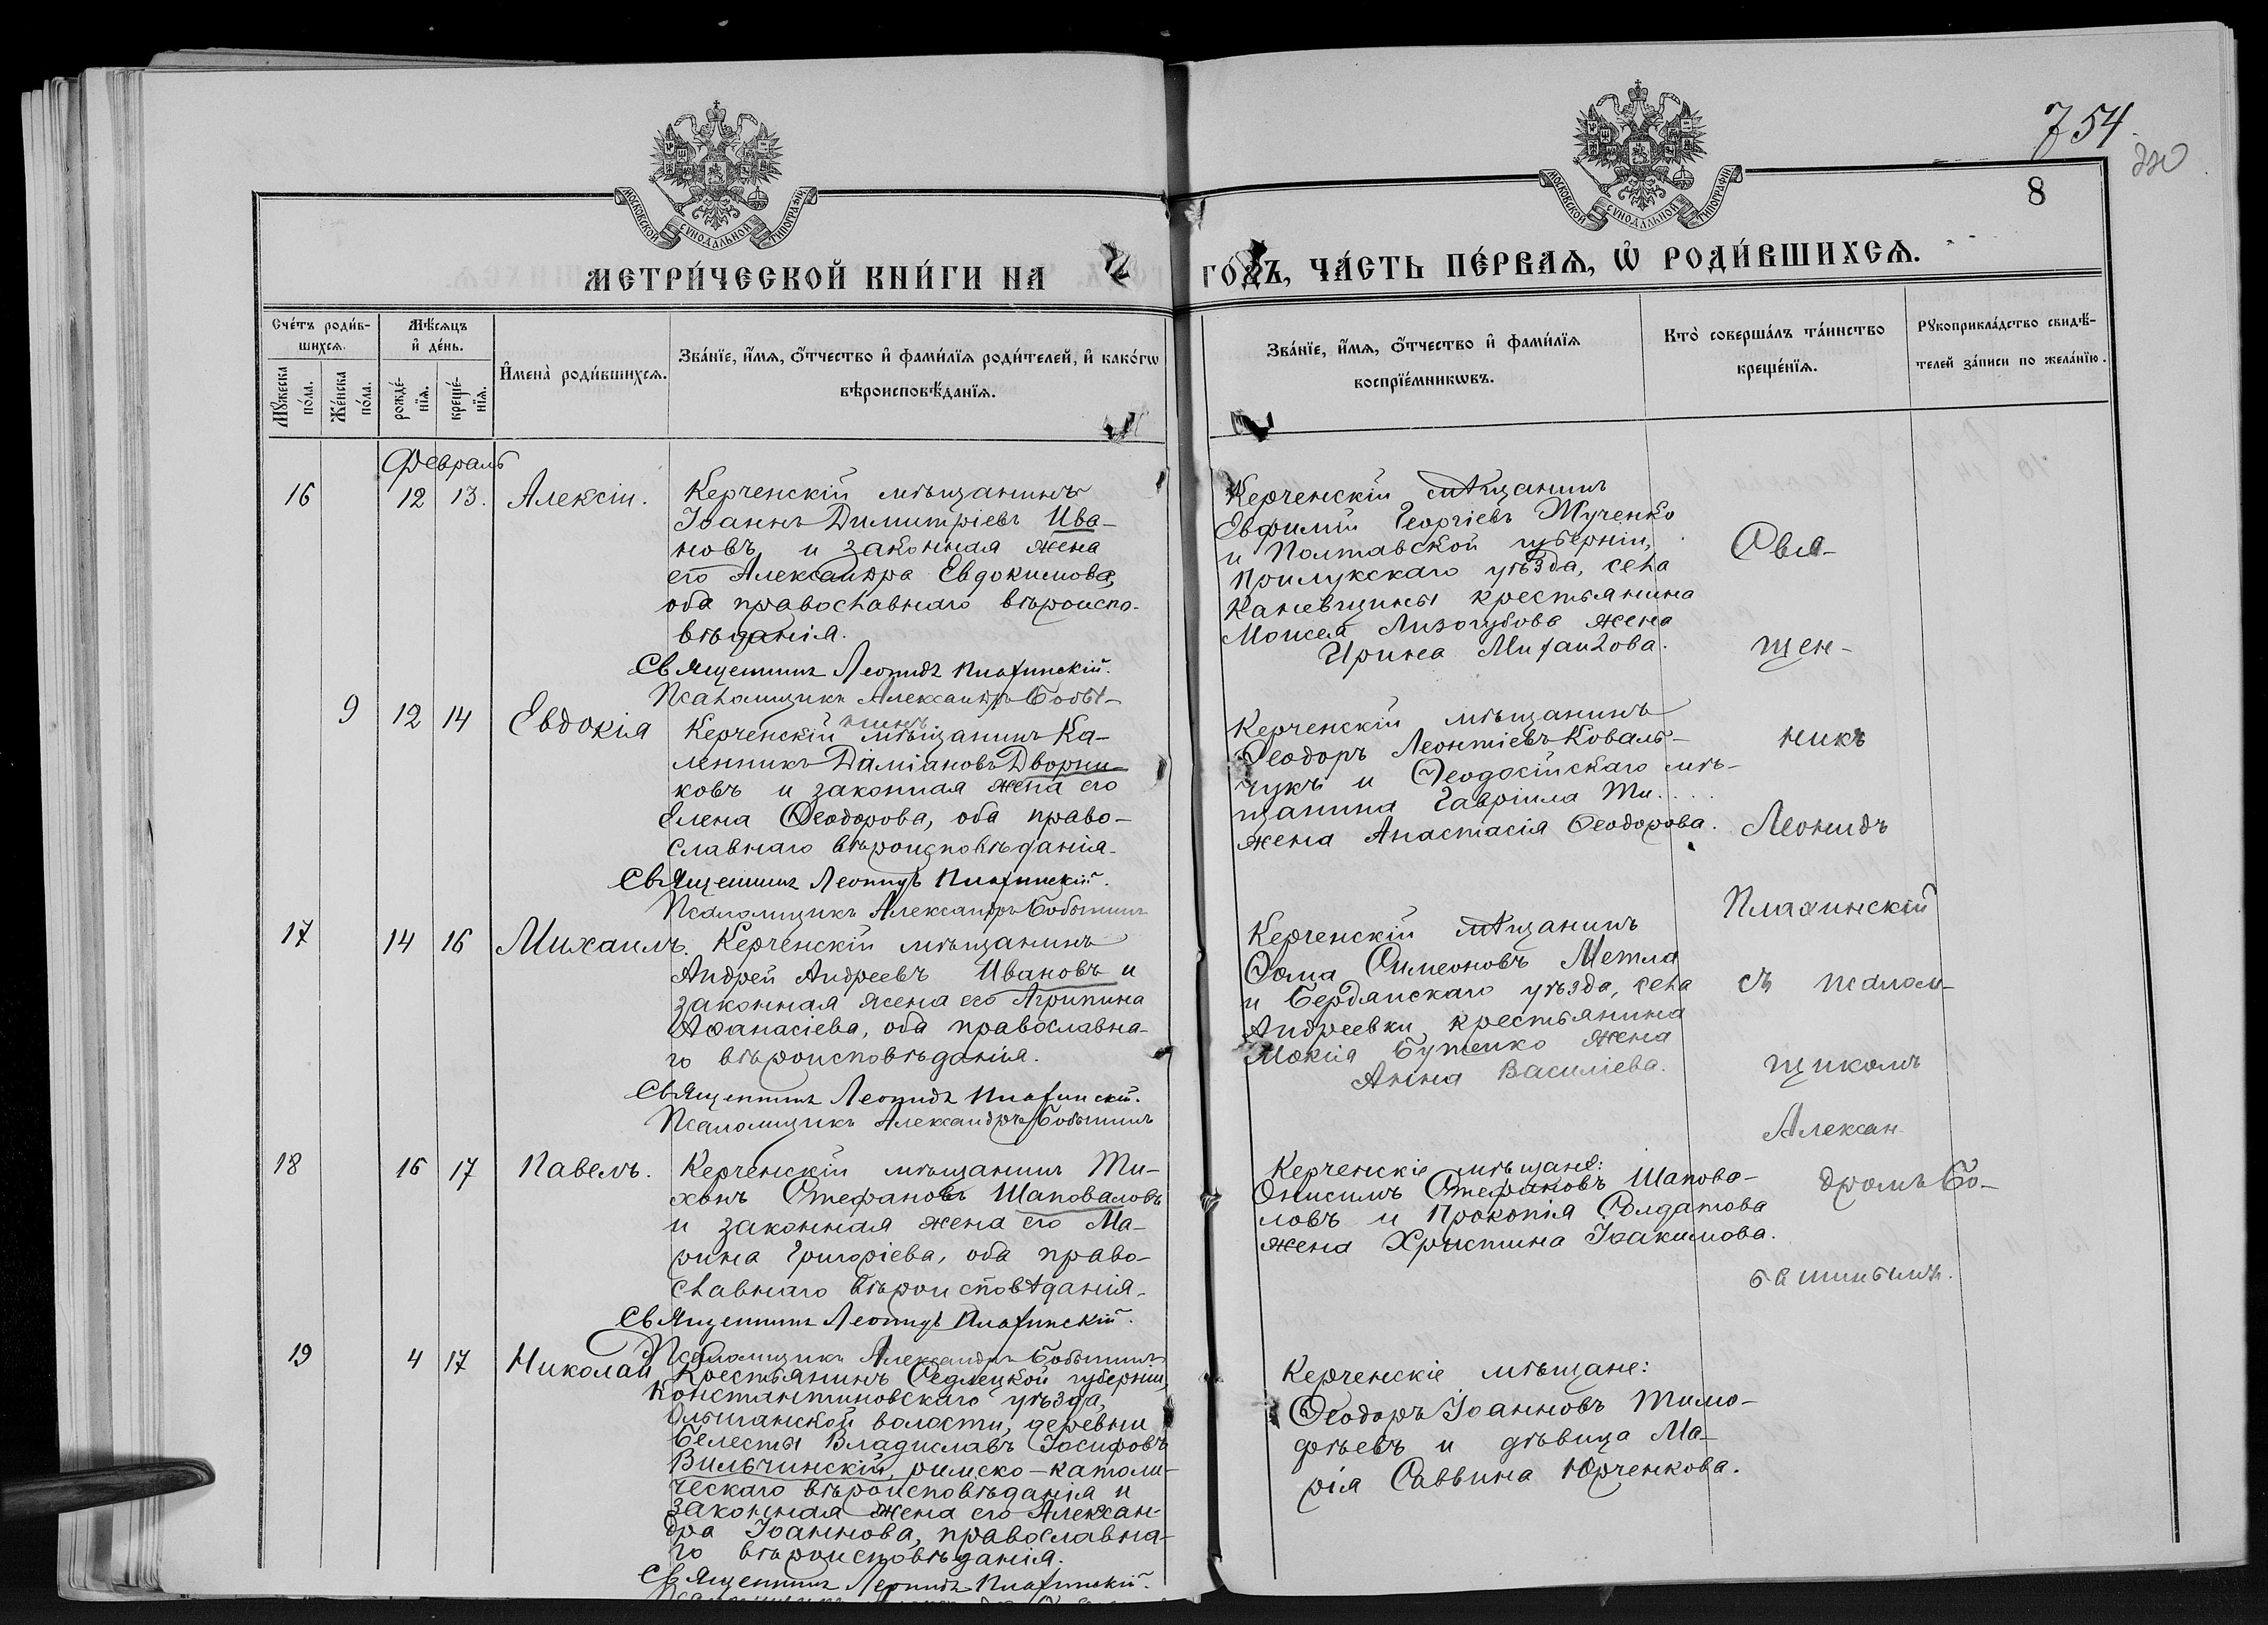 754
8
МОСКОВСКОЙ СѴНОДАЛЬНОЙ ТИПОГРАФІИ
МОСКОВСКОЙ СѴНОДАЛЬНОЙ ТИПОГРАФІИ
МЕТРИ́ЧЕСКОЙ КНИ́ГИ НА
ГОДЪ, ЧА́СТЬ ПЕ́РВАѦ, Ѡ҆ РОДИ́ВШИХСѦ.
Сче́тъ роди́в-
шихсѧ.
Мꙋ́жеска по́ла.
Же́нска по́ла.
Мѣ́сѧцъ
и҆ де́нь.
рожде́-
нїѧ.
креще́-
нїѧ.
И҆мена̀ роди́вшихсѧ.
Зва́нїе, и҆́мѧ, ѻ҆́тчество и҆ фами́лїѧ роди́телей, и҆ како́гѡ
вѣроисповѣ́данїѧ.
Зва́нїе, и҆́мѧ, ѻ҆́тчество и҆ фами́лїѧ
воспрїе́мникѡвъ.
Кто̀ соверша́лъ та́инство
креще́нїѧ.
Рꙋкоприкла́дство свидѣ́-
телей за́писи по жела́нїю.
Февраль
16 12 13. Алексій.
Керченскій мѣщанинъ
Іоаннъ Димитріевъ Ива-
новъ и законная жена
его Александра Евдокимова,
оба православнаго вѣроиспо-
вѣданія.
Священникъ Леонидъ Плахинскій.
Псаломщикъ Александръ Бобы-
шинъ
Керченскій мѣщанинъ
Евфимій Георгіевъ Жученко
и Полтавской губерніи,
Прилукскаго уѣзда, села
Каневщины крестьянина
Моисея Лизогубова жена
Ирина Михаилова.
9 12 14 Евдокія
Керченскій мѣщанинъ Ка-
ленникъ Даміановъ Дворни-
ковъ и законная жена его
Елена Ѳеодорова, оба право-
славнаго вѣроисповѣданія.
Священникъ Леонидъ Плахинскій.
Псаломщикъ Александръ Бобышинъ
Керченскій мѣщанинъ
Ѳеодоръ Леонтіевъ Коваль-
чукъ и Ѳеодосійскаго мѣ-
щанина Гавріила Ти.....
жена Анастасія Ѳеодорова.
17 14 16 Михаилъ.
Керченскій мѣщанинъ
Андрей Андреевъ Ивановъ и
законная жена его Агрипина
Аѳанасіева, оба православна-
го вѣроисповѣданія.
Священникъ Леонидъ Плахинскій.
Псаломщикъ Александръ Бобышинъ
Керченскій мѣщанинъ
Ѳома Симеоновъ Метла
и Бердянскаго уѣзда, села
Андреевки, крестьянина
Мокія Бутенко жена
Анна Василіева.
18 16 17 Павелъ.
Керченскій мѣщанинъ Ти-
хонъ Стефановъ Шаповаловъ
и законная жена его Ма-
рина Григоріева, оба право-
славнаго вѣроисповѣданія.
Священникъ Леонидъ Плахинскій.
Псаломщикъ Александръ Бобышинъ
Керченскіе мѣщане:
Онисимъ Стефановъ Шапова-
ловъ и Прокопія Солдатова
жена Христина Іоакимова.
19 4 17 Николай
Крестьянинъ Седлецкой губерніи,
Константиновскаго уѣзда,
Ольшанской волости, деревни
Белесты Владиславъ Іосифовъ
Вильчинскій, римско-католи-
ческаго вѣроисповѣданія и
законная жена его Алексан-
дра Іоаннова, православна-
го вѣроисповѣданія.
Священникъ Леонидъ Плахинскій.
Керченскіе мѣщане:
Ѳеодоръ Іоанновъ Тимо-
фѣевъ и дѣвица Ма-
рія Саввина Юрченкова.
Свя-
щен-
никъ
Леонидъ
Плахинскій
съ псалом-
щикомъ
Алексан
дромъ Бо-